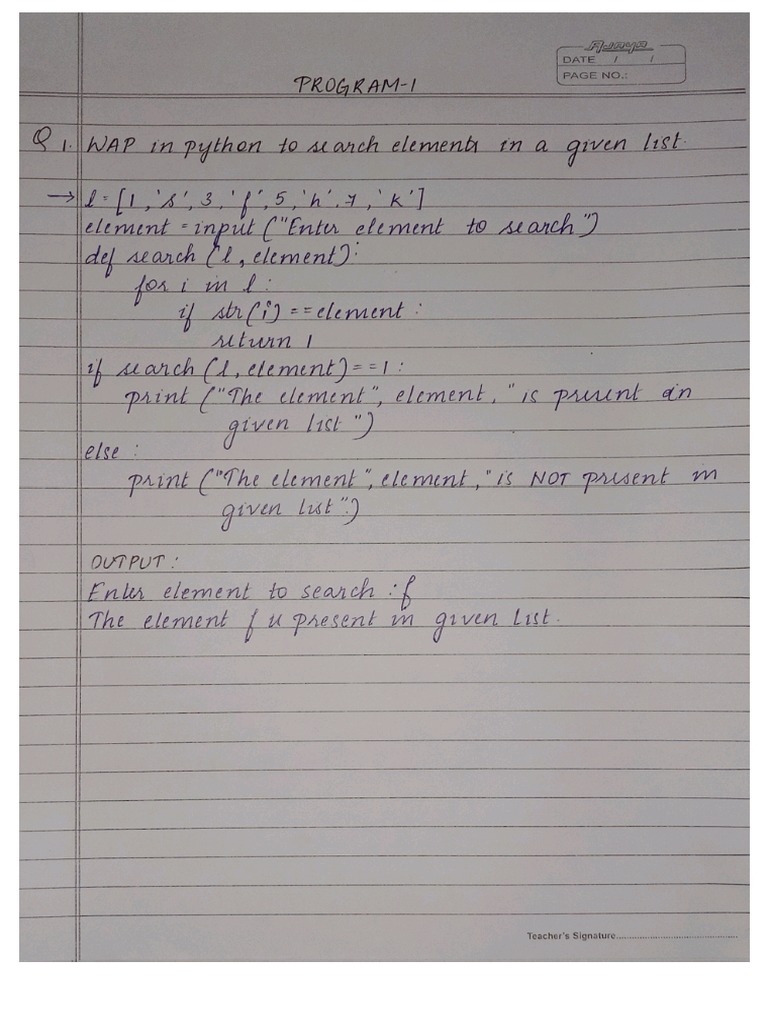 Ajaya
DATE / /
PAGE NO.:
PROGRAM-1
Q 1. WAP in python to search elements in a given list.
→ l = [1, 's', 3, 'f', 5, 'h', 7, 'k']
element = input ("Enter element to search")
def search (l, element):
for i in l :
if str(i) == element :
return 1
if search (l, element) == 1 :
print ("The element", element, "is present in
given list")
else :
print ("The element", element, "is NOT present in
given list".)
OUTPUT :
Enter element to search : f
The element f is present in given list.
Teacher's Signature..........................................